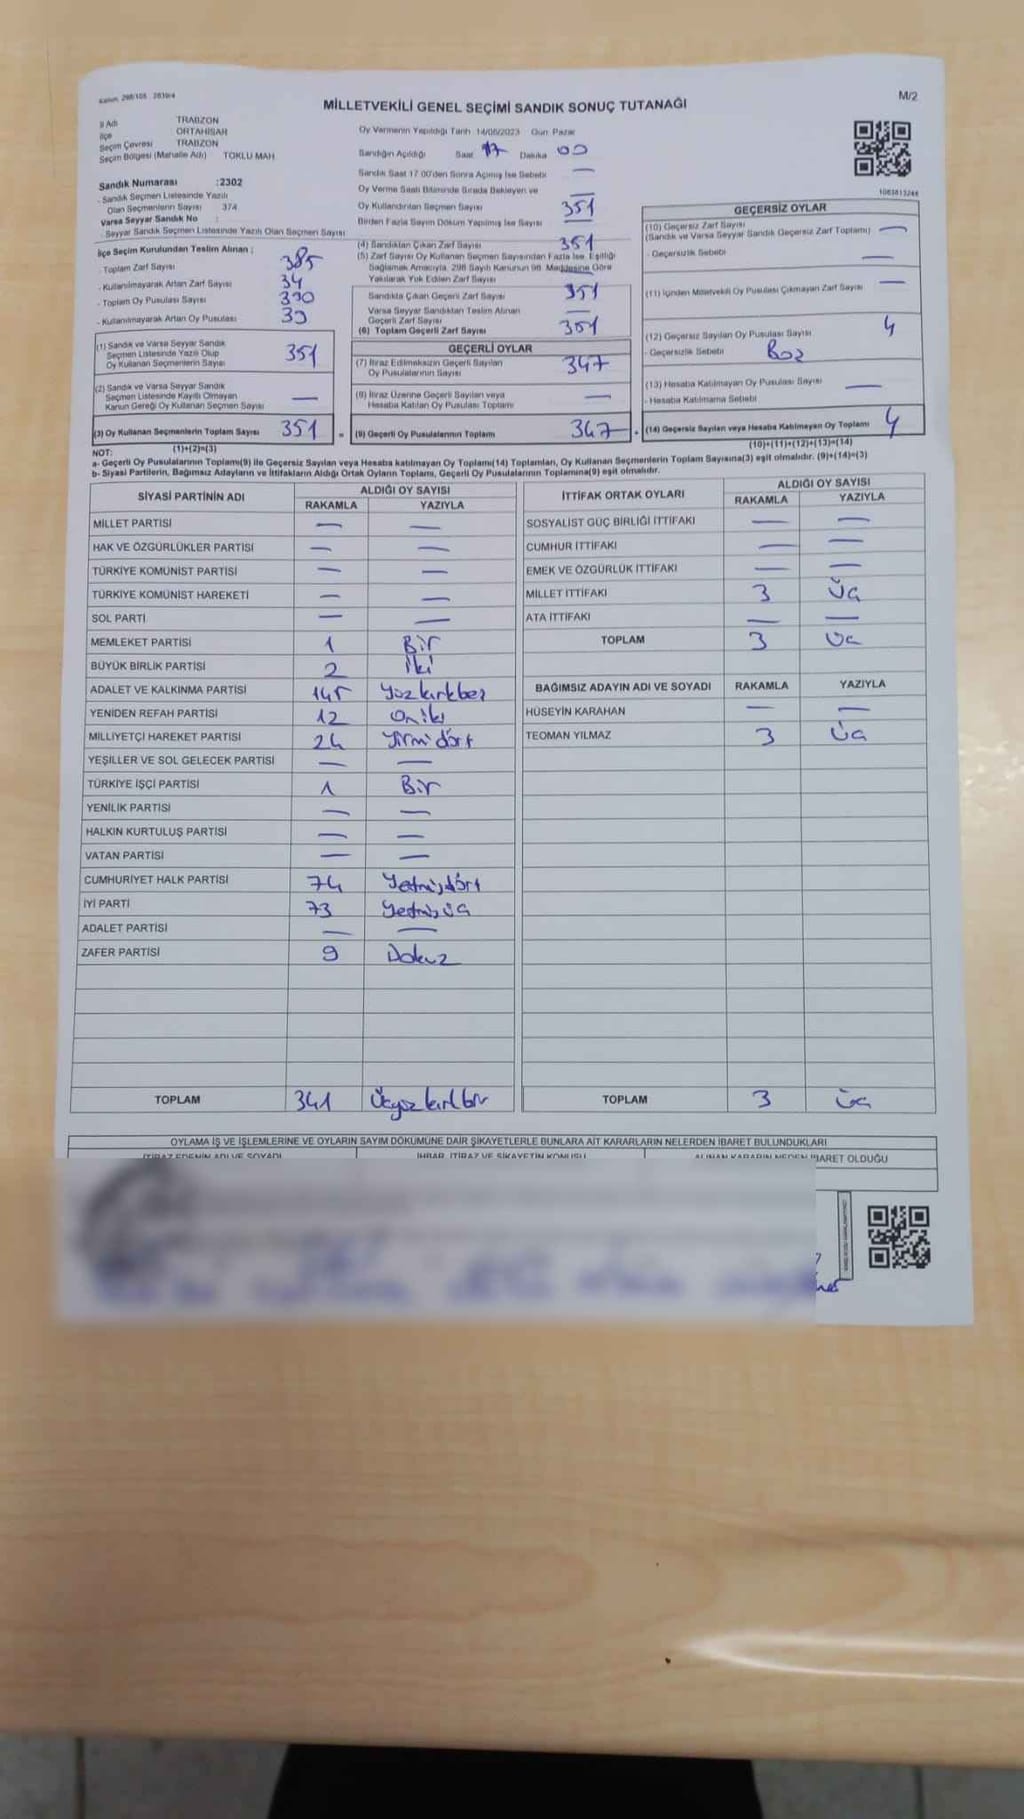 Kanun: 298/105 - 2839/4
MİLLETVEKİLİ GENEL SEÇİMİ SANDIK SONUÇ TUTANAĞI
M/2
İl Adı TRABZON
İlçe ORTAHİSAR
Seçim Çevresi TRABZON
Seçim Bölgesi (Mahalle Adı) TOKLU MAH.
Sandık Numarası :2302
- Sandık Seçmen Listesinde Yazılı
Olan Seçmenlerin Sayısı 374
Varsa Seyyar Sandık No :
- Seyyar Sandık Seçmen Listesinde Yazılı Olan Seçmen Sayısı
İlçe Seçim Kurulundan Teslim Alınan :
- Toplam Zarf Sayısı 385
- Kullanılmayarak Artan Zarf Sayısı 34
- Toplam Oy Pusulası Sayısı 390
- Kullanılmayarak Artan Oy Pusulası 39
(1) Sandık ve Varsa Seyyar Sandık
Seçmen Listesinde Yazılı Olup
Oy Kullanan Seçmenlerin Sayısı 351
(2) Sandık ve Varsa Seyyar Sandık
Seçmen Listesinde Kayıtlı Olmayan
Kanun Gereği Oy Kullanan Seçmen Sayısı —
(3) Oy Kullanan Seçmenlerin Toplam Sayısı 351 =
(1)+(2)=(3)
Oy Vermenin Yapıldığı Tarih 14/05/2023 Gün Pazar
Sandığın Açıldığı Saat 17 Dakika 00
Sandık Saat 17.00'den Sonra Açılmış İse Sebebi —
Oy Verme Saati Bitiminde Sırada Bekleyen ve
Oy Kullandırılan Seçmen Sayısı — 351
Birden Fazla Sayım Döküm Yapılmış İse Sayısı —
(4) Sandıktan Çıkan Zarf Sayısı 351
(5) Zarf Sayısı Oy Kullanan Seçmen Sayısından Fazla İse, Eşitliği
Sağlamak Amacıyla, 298 Sayılı Kanunun 98. Maddesine Göre
Yakılarak Yok Edilen Zarf Sayısı —
Sandıkta Çıkan Geçerli Zarf Sayısı 351
Varsa Seyyar Sandıktan Teslim Alınan
Geçerli Zarf Sayısı —
(6) Toplam Geçerli Zarf Sayısı 351
GEÇERLİ OYLAR
(7) İtiraz Edilmeksizin Geçerli Sayılan
Oy Pusulalarının Sayısı 347
(8) İtiraz Üzerine Geçerli Sayılan veya
Hesaba Katılan Oy Pusulası Toplamı —
(9) Geçerli Oy Pusulalarının Toplamı 347 +
1063813246
GEÇERSİZ OYLAR
(10) Geçersiz Zarf Sayısı —
(Sandık ve Varsa Seyyar Sandık Geçersiz Zarf Toplamı)
- Geçersizlik Sebebi —
(11) İçinden Milletvekili Oy Pusulası Çıkmayan Zarf Sayısı —
(12) Geçersiz Sayılan Oy Pusulası Sayısı 4
- Geçersizlik Sebebi Boz
(13) Hesaba Katılmayan Oy Pusulası Sayısı —
- Hesaba Katılmama Sebebi
(14) Geçersiz Sayılan veya Hesaba Katılmayan Oy Toplamı 4
(10)+(11)+(12)+(13)=(14)
NOT:
a- Geçerli Oy Pusulalarının Toplamı(9) ile Geçersiz Sayılan veya Hesaba katılmayan Oy Toplamı(14) Toplamları, Oy Kullanan Seçmenlerin Toplam Sayısına(3) eşit olmalıdır. (9)+(14)=(3)
b- Siyasi Partilerin, Bağımsız Adayların ve İttifakların Aldığı Ortak Oyların Toplamı, Geçerli Oy Pusulalarının Toplamına(9) eşit olmalıdır.
SİYASİ PARTİNİN ADI ALDIĞI OY SAYISI
RAKAMLA YAZIYLA
MİLLET PARTİSİ — —
HAK VE ÖZGÜRLÜKLER PARTİSİ — —
TÜRKİYE KOMÜNİST PARTİSİ — —
TÜRKİYE KOMÜNİST HAREKETİ — —
SOL PARTİ — —
MEMLEKET PARTİSİ 1 Bir
BÜYÜK BİRLİK PARTİSİ 2 İki
ADALET VE KALKINMA PARTİSİ 145 Yüzkırkbeş
YENİDEN REFAH PARTİSİ 12 Oniki
MİLLİYETÇİ HAREKET PARTİSİ 24 Yirmidört
YEŞİLLER VE SOL GELECEK PARTİSİ — —
TÜRKİYE İŞÇİ PARTİSİ 1 Bir
YENİLİK PARTİSİ — —
HALKIN KURTULUŞ PARTİSİ — —
VATAN PARTİSİ — —
CUMHURİYET HALK PARTİSİ 74 Yetmişdört
İYİ PARTİ 73 Yetmişüç
ADALET PARTİSİ — —
ZAFER PARTİSİ 9 Dokuz
TOPLAM 341 Üçyüzkırkbir
İTTİFAK ORTAK OYLARI ALDIĞI OY SAYISI
RAKAMLA YAZIYLA
SOSYALİST GÜÇ BİRLİĞİ İTTİFAKI — —
CUMHUR İTTİFAKI — —
EMEK VE ÖZGÜRLÜK İTTİFAKI — —
MİLLET İTTİFAKI 3 Üç
ATA İTTİFAKI — —
TOPLAM 3 Üç
BAĞIMSIZ ADAYIN ADI VE SOYADI RAKAMLA YAZIYLA
HÜSEYİN KARAHAN — —
TEOMAN YILMAZ 3 Üç
TOPLAM 3 Üç
OYLAMA İŞ VE İŞLEMLERİNE VE OYLARIN SAYIM DÖKÜMÜNE DAİR ŞİKAYETLERLE BUNLARA AİT KARARLARIN NELERDEN İBARET BULUNDUKLARI
İTİRAZ EDENİN ADI VE SOYADI İHBAR, İTİRAZ VE ŞİKAYETİN KONUSU ALINAN KARARIN NEDEN İBARET OLDUĞU